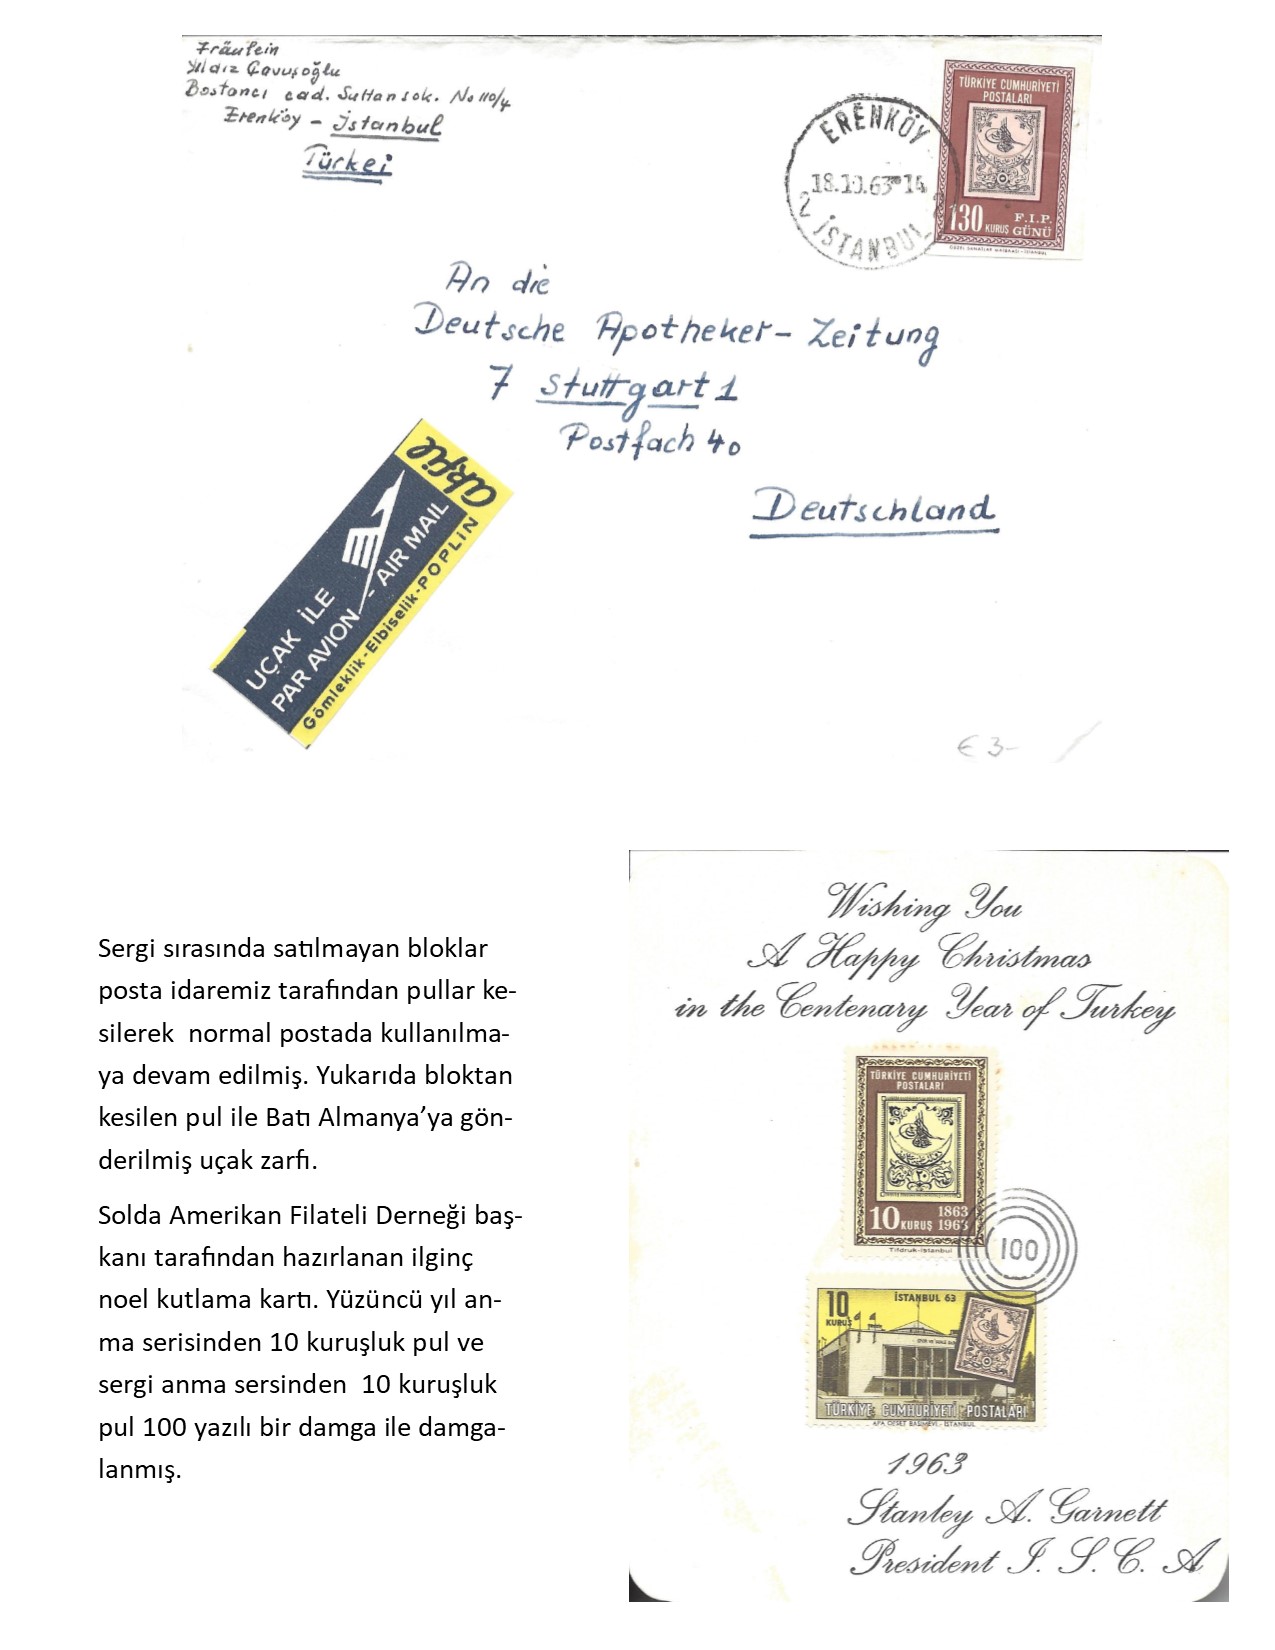 Fräulein
Yıldız Çavuşoğlu
Bostancı cad. Sultan sok. No 110/4
Erenköy - İstanbul
Türkei
TÜRKİYE CUMHURİYETİ
POSTALARI
130 KURUŞ
F.I.P.
GÜNÜ
ÖZEL SANATLAR MATBAASI - İSTANBUL
ERENKÖY
18.10.63 14
2 İSTANBUL 2
An die
Deutsche Apotheker-Zeitung
7 Stuttgart 1
Postfach 40
Deutschland
akfil
UÇAK İLE
PAR AVION - AIR MAIL
Gömleklik-Elbiselik-POPLİN
€ 3-
Sergi sırasında satılmayan bloklar
posta idaremiz tarafından pullar ke-
silerek  normal postada kullanılma-
ya devam edilmiş. Yukarıda bloktan
kesilen pul ile Batı Almanya’ya gön-
derilmiş uçak zarfı.
Solda Amerikan Filateli Derneği baş-
kanı tarafından hazırlanan ilginç
noel kutlama kartı. Yüzüncü yıl an-
ma serisinden 10 kuruşluk pul ve
sergi anma sersinden  10 kuruşluk
pul 100 yazılı bir damga ile damga-
lanmış.
Wishing You
A Happy Christmas
in the Centenary Year of Turkey
TÜRKİYE CUMHURİYETİ
POSTALARI
10 KURUŞ
1863
1963
Tifdruk-İstanbul
100
10
KURUŞ
İSTANBUL 63
TÜRKİYE CUMHURİYETİ POSTALARI
AFA OFSET BASIMEVİ - İSTANBUL
1963
Stanley A. Garnett
President I. S. C. A